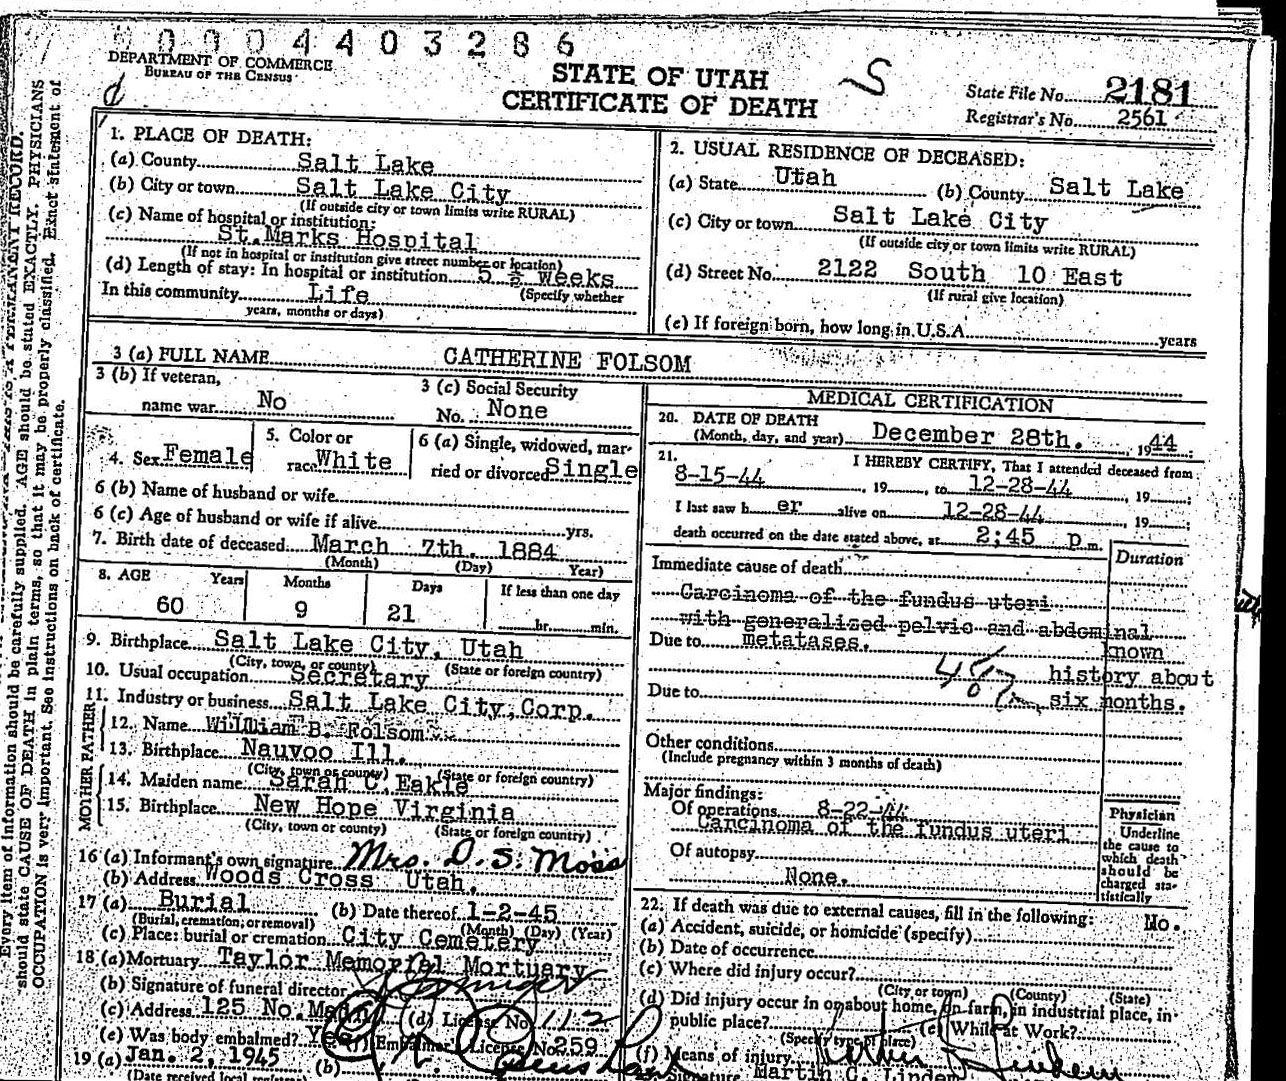 0 0 0 0 4 4 0 3 2 8 6
DEPARTMENT OF COMMERCE
BUREAU OF THE CENSUS
STATE OF UTAH
CERTIFICATE OF DEATH
S
State File No. 2181
Registrar's No. 2561
Every item of information should be carefully supplied. AGE should be stated EXACTLY. PHYSICIANS
should state CAUSE OF DEATH in plain terms, so that it may be properly classified. Exact statement of
OCCUPATION is very important. See instructions on back of certificate.
1. PLACE OF DEATH:
(a) County Salt Lake
(b) City or town Salt Lake City
(If outside city or town limits write RURAL)
(c) Name of hospital or institution:
St.Marks Hospital
(If not in hospital or institution give street number or location)
(d) Length of stay: In hospital or institution 5 ½ weeks
In this community Life (Specify whether
years, months or days)
2. USUAL RESIDENCE OF DECEASED:
(a) State Utah (b) County Salt Lake
(c) City or town Salt Lake City
(If outside city or town limits write RURAL)
(d) Street No. 2122 South 10 East
(If rural give location)
(e) If foreign born, how long in U.S.A. years
3 (a) FULL NAME CATHERINE FOLSOM
3 (b) If veteran,
name war No
3 (c) Social Security
No. None
4. Sex Female
5. Color or
race White
6 (a) Single, widowed, mar-
ried or divorced Single
6 (b) Name of husband or wife
6 (c) Age of husband or wife if alive yrs.
7. Birth date of deceased March 7th. 1884
(Month) (Day) Year)
8. AGE Years Months Days If less than one day
60 9 21 hr. min.
9. Birthplace Salt Lake City, Utah
(City, town, or county) (State or foreign country)
10. Usual occupation Secretary
11. Industry or business Salt Lake City, Corp.
FATHER
12. Name William B. Folsom
13. Birthplace Nauvoo Ill.
(City, town or county) (State or foreign country)
MOTHER
14. Maiden name Sarah C. Eakle
15. Birthplace New Hope Virginia
(City, town or county) (State or foreign country)
16 (a) Informant's own signature Mrs. D. S. Moss
(b) Address Woods Cross Utah.
17 (a) Burial (b) Date thereof 1-2-45
(Burial, cremation, or removal) (Month) (Day) (Year)
(c) Place: burial or cremation City Cemetery
18 (a) Mortuary Taylor Memorial Mortuary
(b) Signature of funeral director
(c) Address 125 No. Main (d) License No. 112
(e) Was body embalmed? Yes (f) Embalmer License No. 259
19 (a) Jan. 2, 1945 (b)
(Date received local
MEDICAL CERTIFICATION
20. DATE OF DEATH
(Month, day, and year) December 28th. , 1944
21. I HEREBY CERTIFY, That I attended deceased from
8-15-44 , 19 , to 12-28-44 , 19 :
I last saw h er alive on 12-28-44 , 19 :
death occurred on the date stated above, at 2;45 p m.
Duration
Immediate cause of death
Carcinoma of the fundus uteri
with generalized pelvic and abdominal
Due to metatases. known
history about
Due to six months.
Other conditions
(Include pregnancy within 3 months of death)
Major findings:
Of operations 8-22-44
Carcinoma of the fundus uteri
Of autopsy
None.
Physician
Underline
the cause to
which death
should be
charged sta-
tistically
22. If death was due to external causes, fill in the following: No.
(a) Accident, suicide, or homicide (specify)
(b) Date of occurrence
(c) Where did injury occur?
(City or town) (County) (State)
(d) Did injury occur in or about home, on farm, in industrial place, in
public place? (e) While at Work?
(Specify type of place)
(f) Means of injury
Signature Martin C. Linden